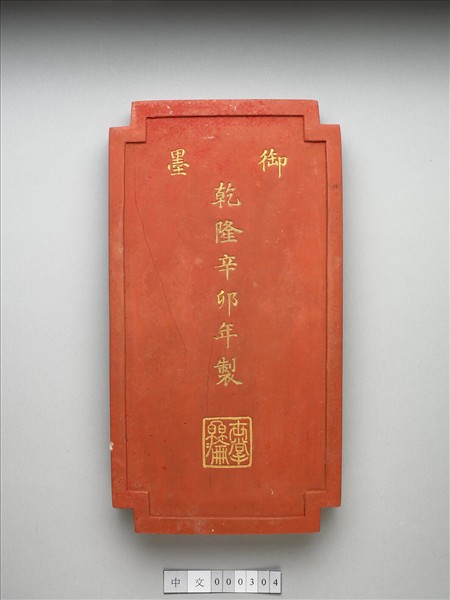 御墨
乾隆辛卯年製
世掌
絲綸
中文000304